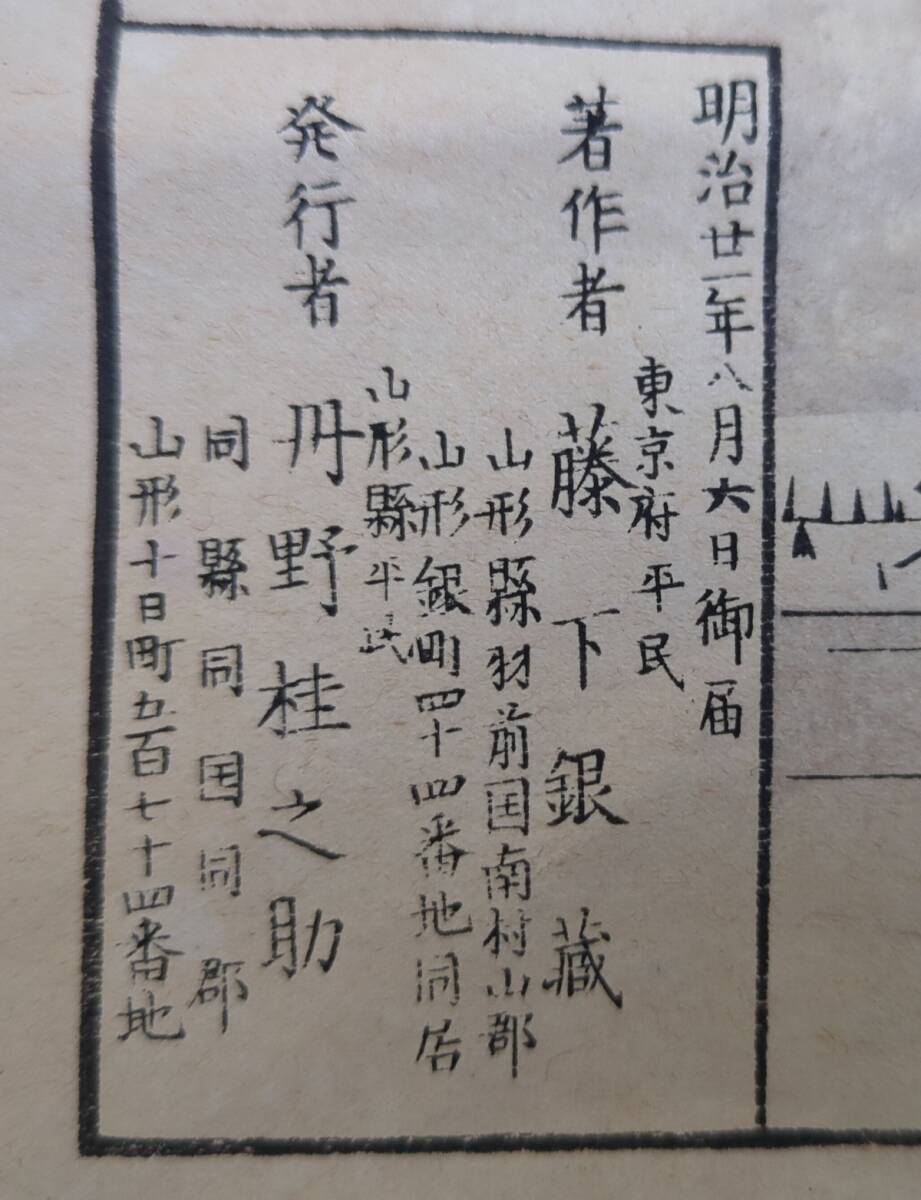 明治廿一年八月六日御届
著作者
東京府平民
藤下銀蔵
山形縣羽前国南村山郡
山形銀町四十四番地同居
発行者
山形縣平民
丹野桂之助
同縣同国同郡
山形十日町五百七十四番地